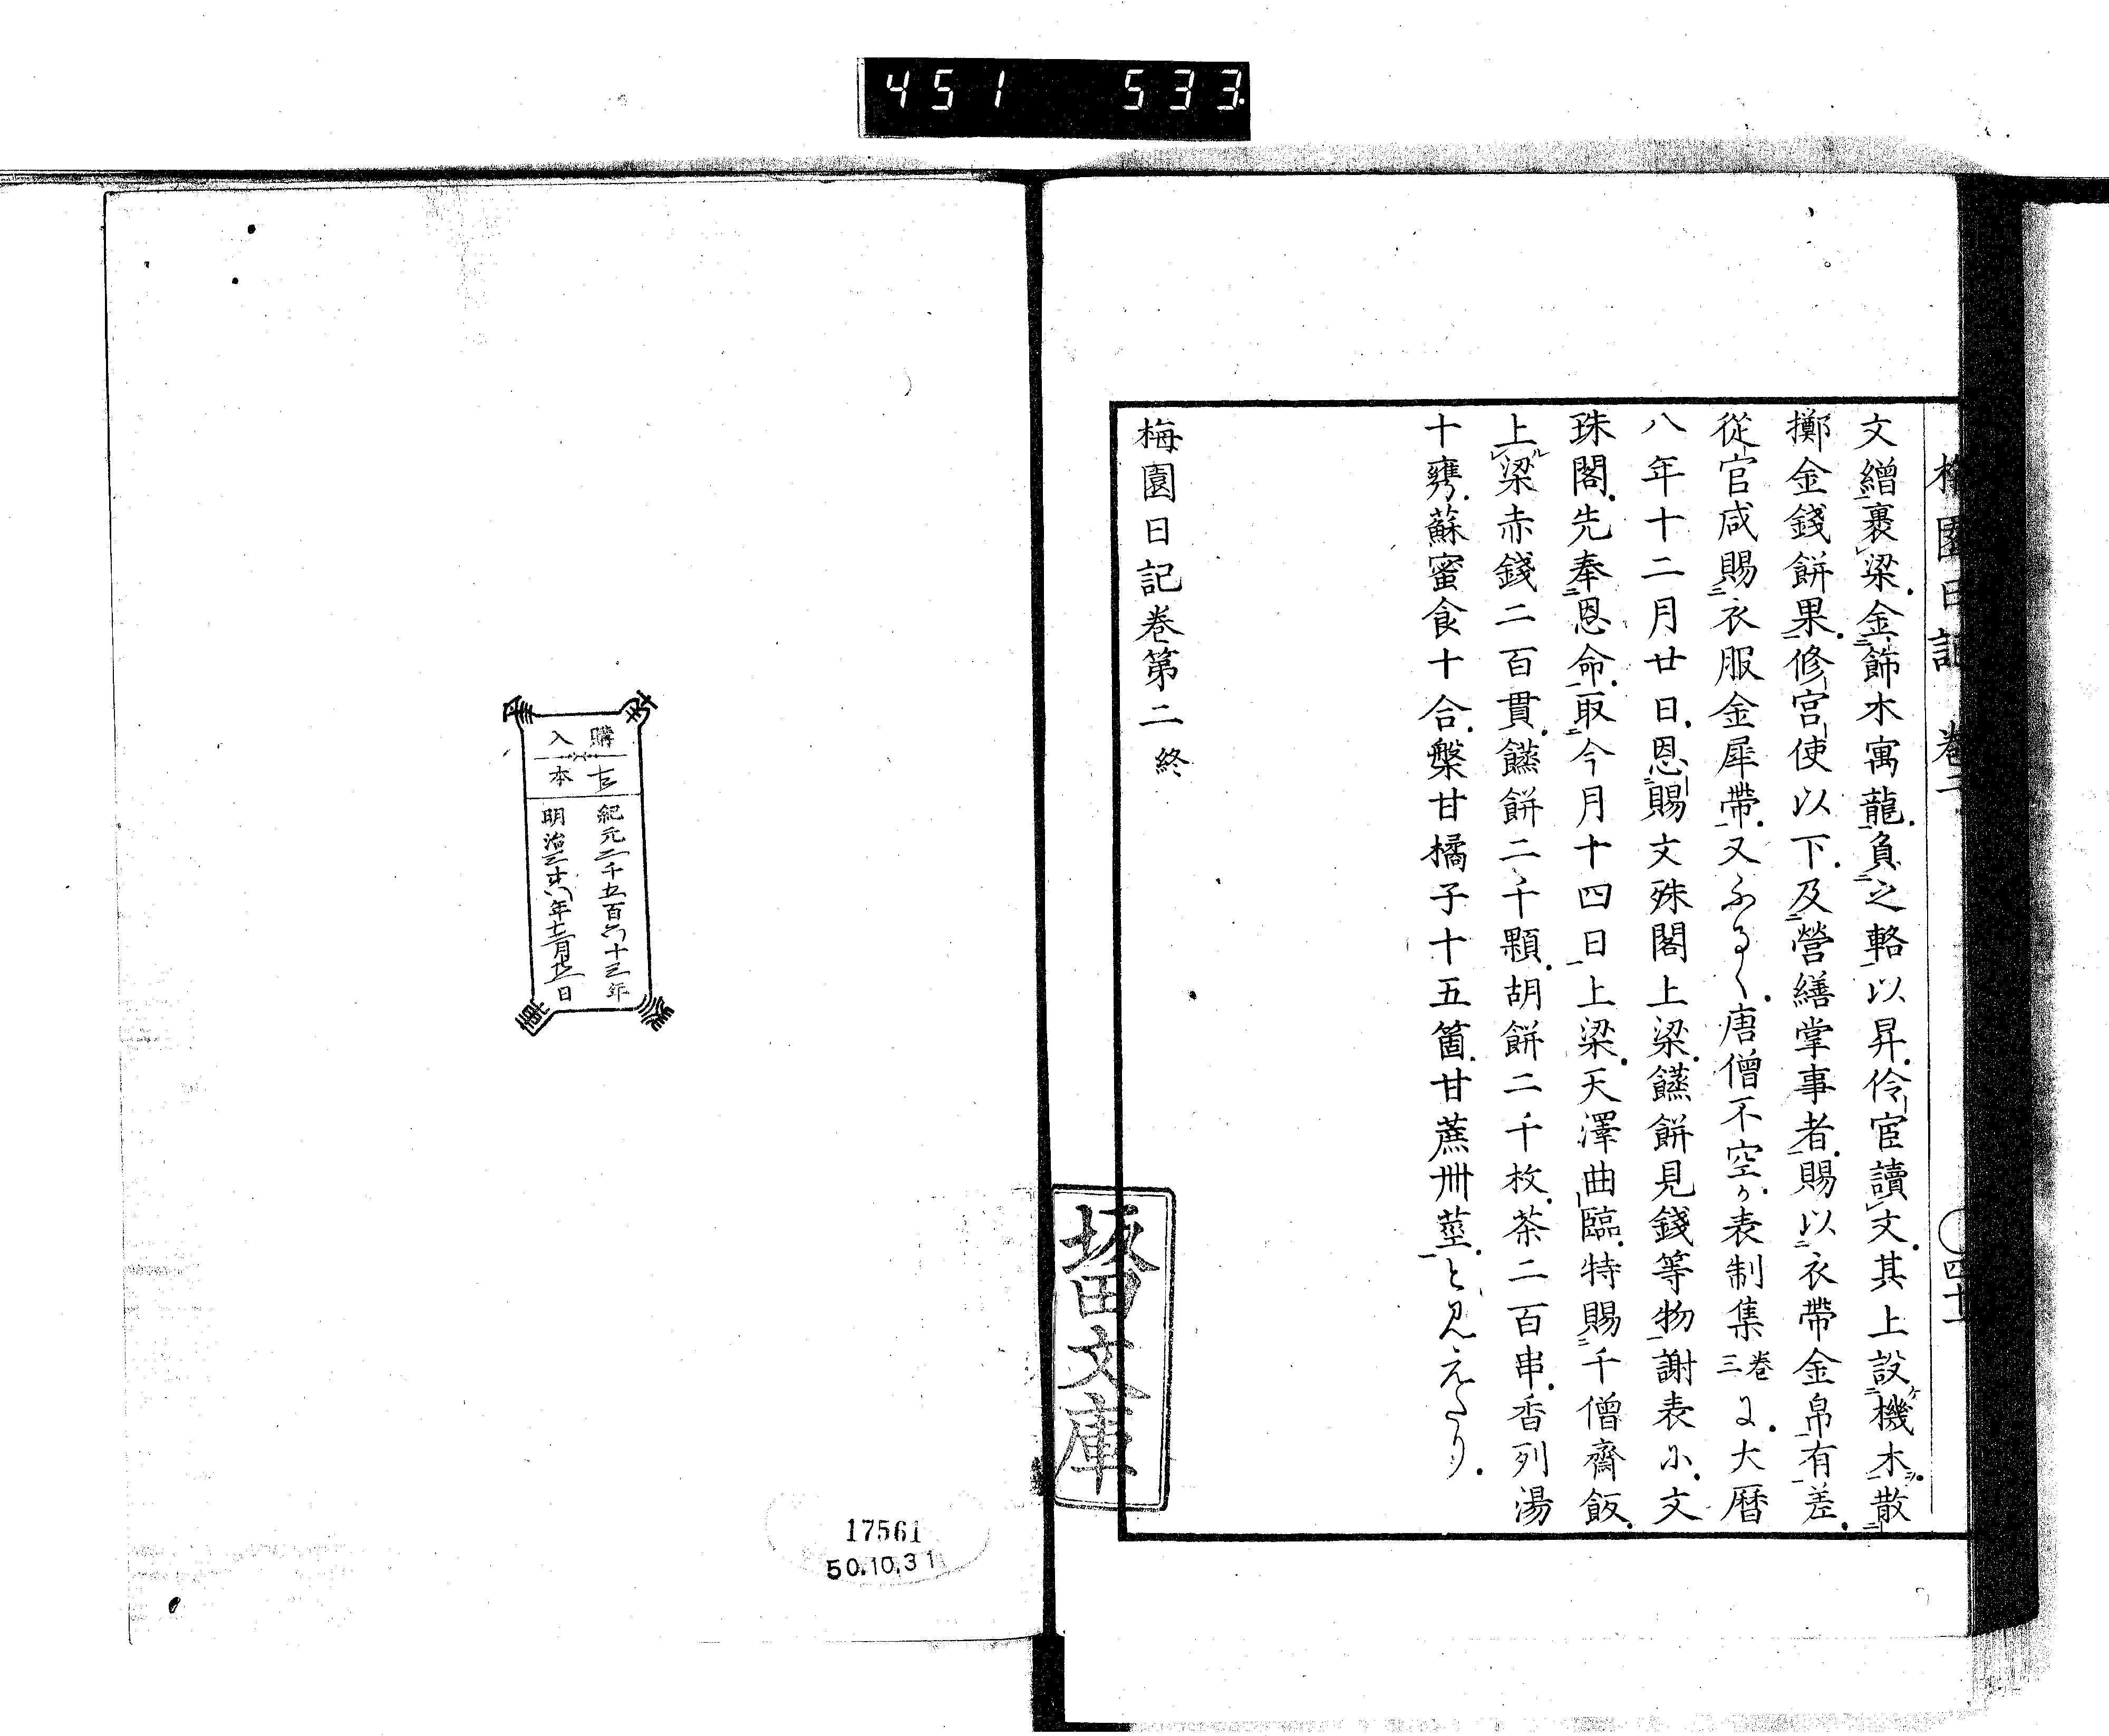 451 533
梅園日記 巻二 四十
文繒裹梁金飾木寓龍負之輅以昇伶宦讀文其上設機木散
擲金錢餅果修宮使以下及營繕掌事者賜以衣帶金帛有差
從官咸賜衣服金犀帶又ふるく唐僧不空か表制集三巻に大暦
八年十二月廿日恩賜文殊閣上梁饊餅見錢等物謝表に文
珠閣先奉恩命取今月十四日上梁天澤曲臨特賜千僧齋飯
上梁赤錢二百貫饊餅二千顆胡餅二千枚茶二百串香列湯
十甕蘇蜜食十合槃甘橘子十五箇甘蔗卌莖と見えたり
梅園日記巻第二終
坂田文庫
購入
本
紀元二千五百六十三年
明治三十六年十二月廿三日
17561
50.10.31